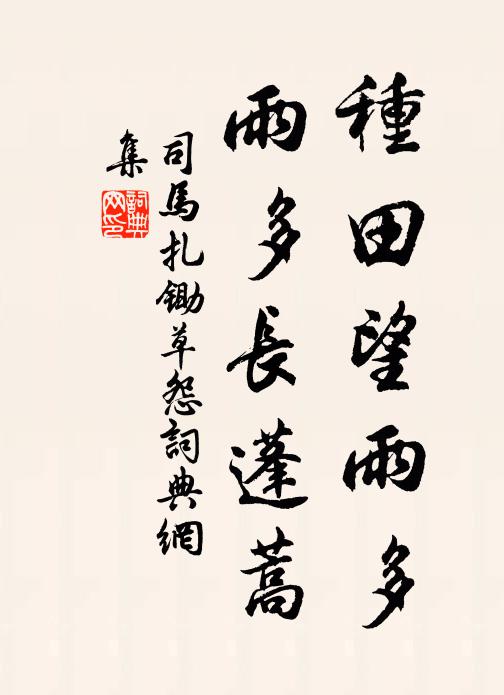 種田望雨多
雨多長蓬蒿
司馬扎鋤草怨詞典網
集
詞典
网印